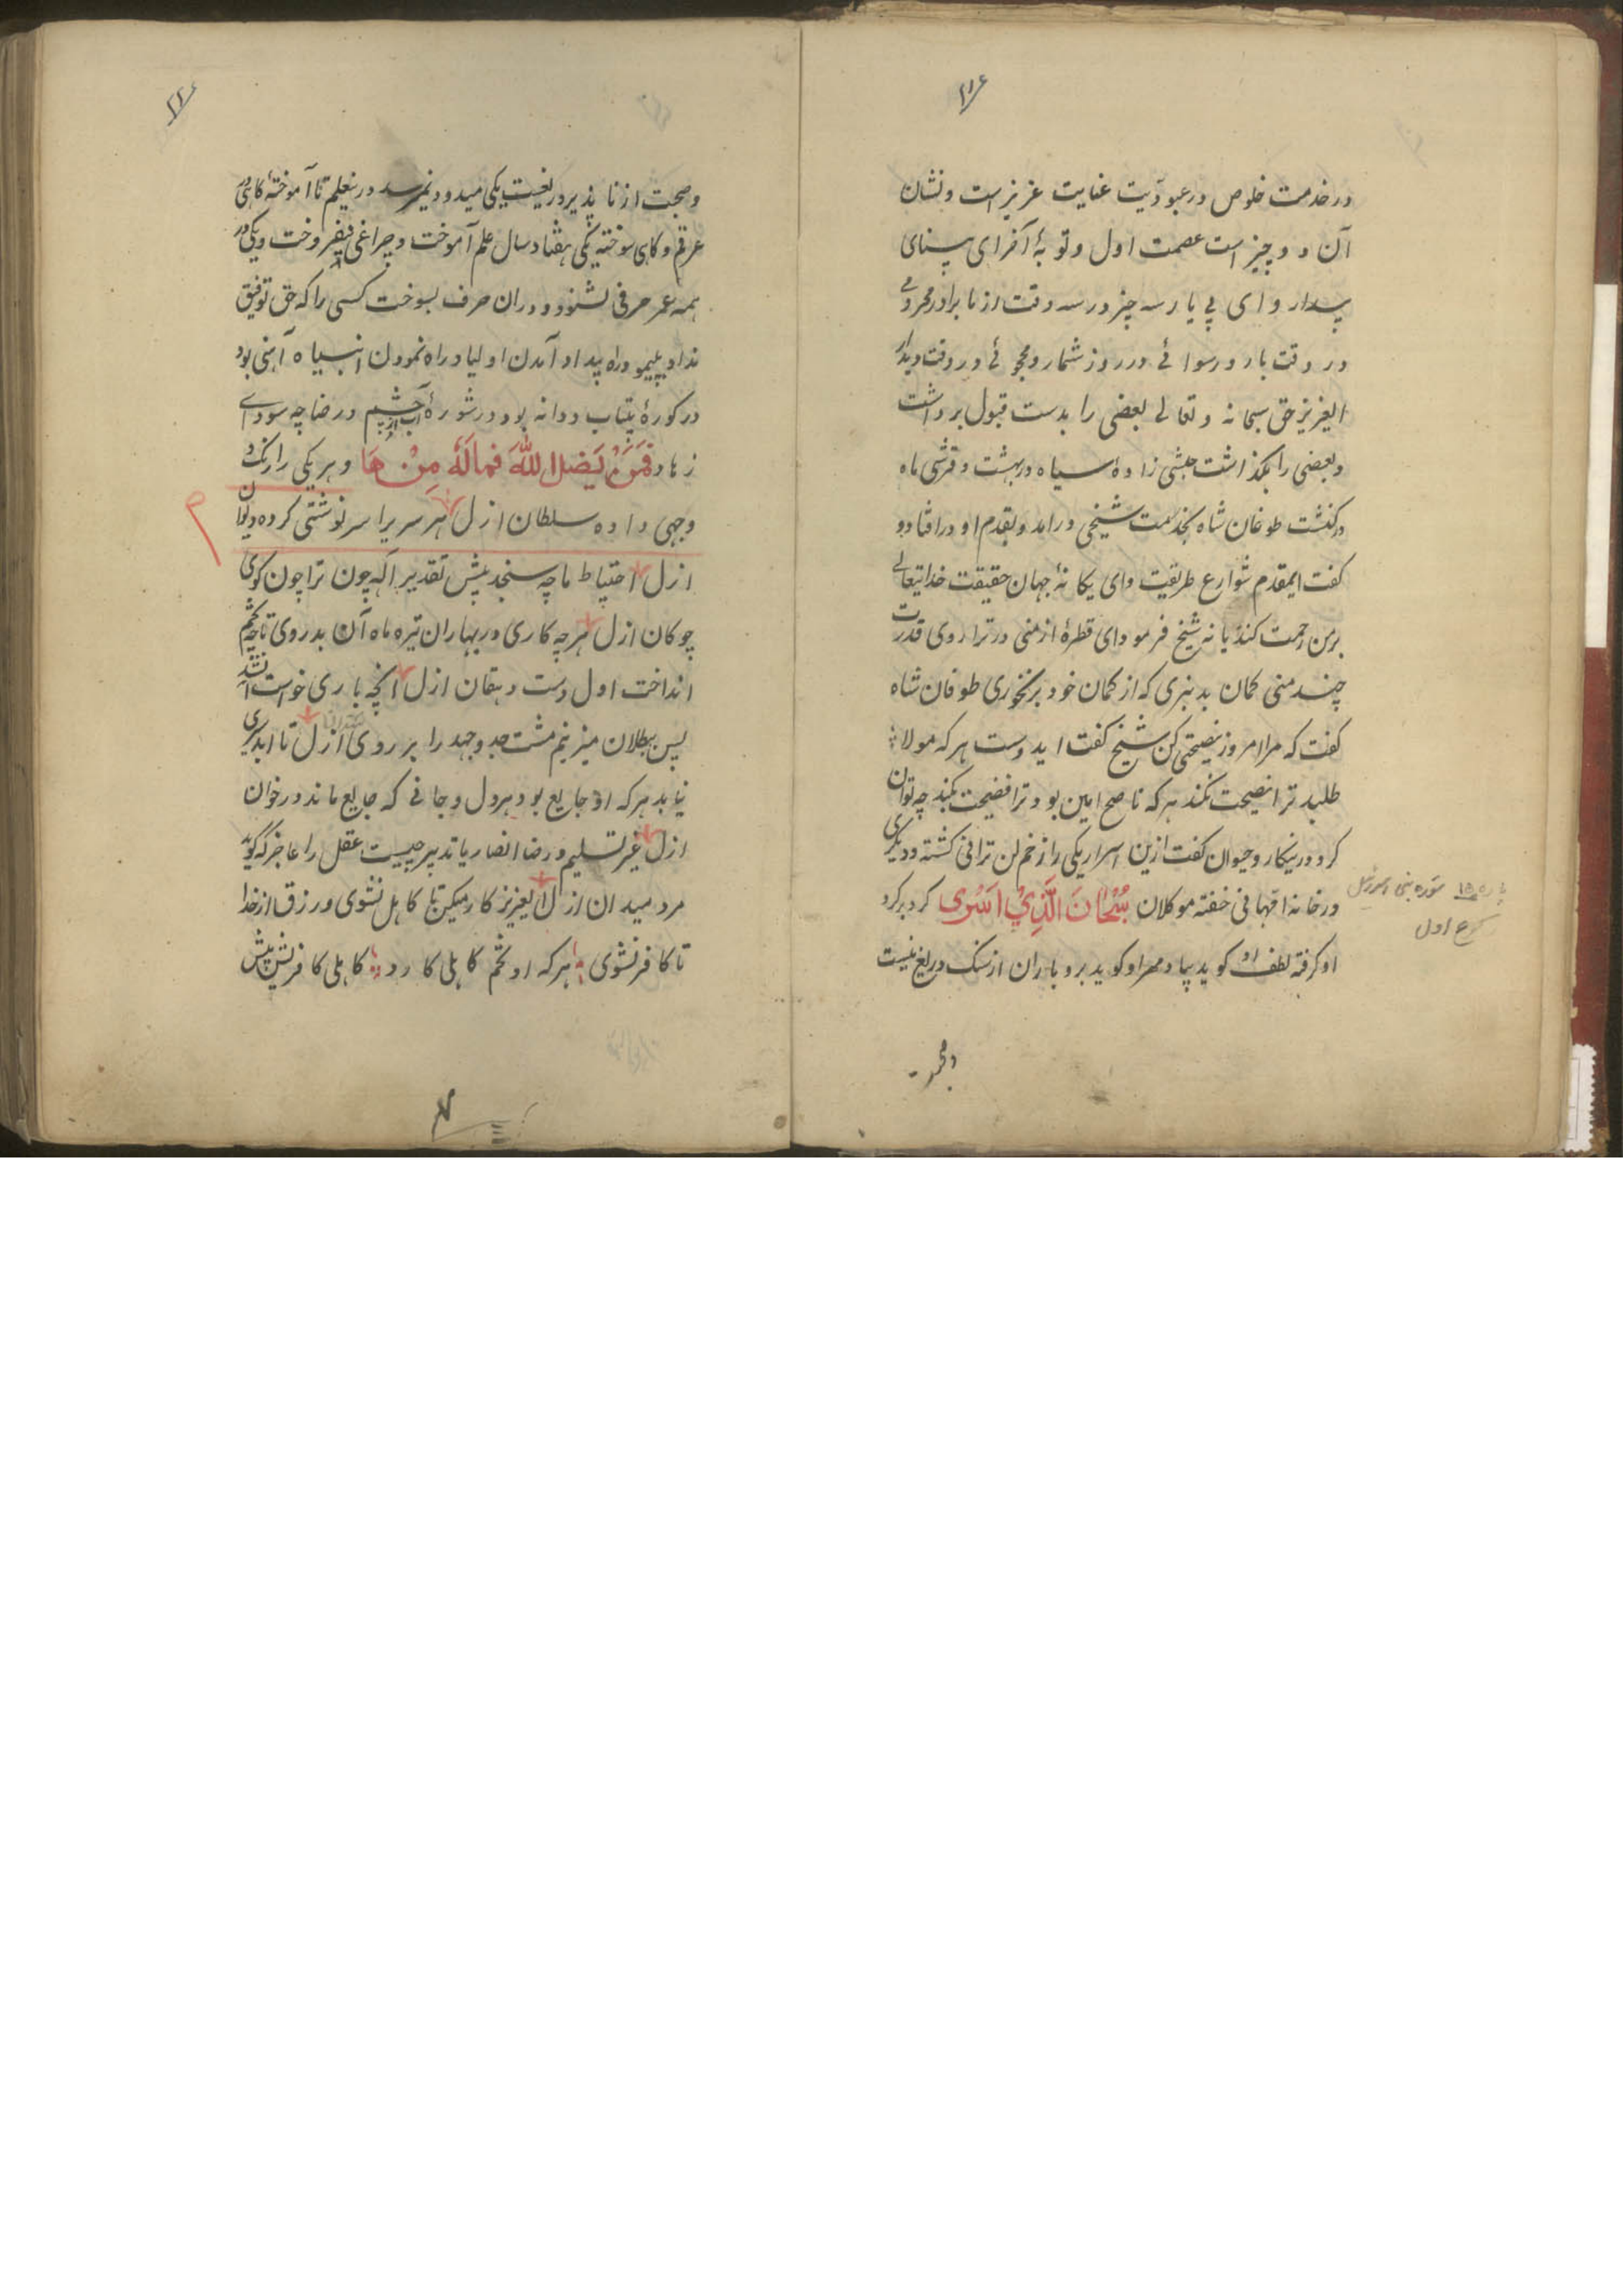 ۲۱۶
در خدمت خلوص در عبودیت عنایت عزیز است و نشان
آن دو چیز است عصمت اول و توبهٔ آخر ای بینای
بیدار و ای پی یار سه چیز در سه وقت از ما برادر محرومی
در وقت بار و رسوائی در روز شمار و محجوئی در وقت دیدار
العزیز حق سبحانه و تعالی بعضی را بدست قبول برداشت
و بعضی را بگذاشت حبشی زادهٔ سیاه در بهشت و قرشی ماه
در کنشت طوغان شاه بخدمت شیخی درآمد و بقدم او در افتاد و
گفت ایمقدم شوارع طریقت و ای یگانهٔ جهان حقیقت خدایتعالی
بر من رحمت کند یا نه شیخ فرمود ای قطرهٔ از منی در ترازوی قدرت
چند منی گمان بد نبری که از گمان خود برنخوری طوغان شاه
گفت که مرا امروز نصیحتی کن شیخ گفت ایدوست هرکه مولا
طلبد ترا نصیحت نکند هرکه ناصح امین بود ترا فضیحت نکند چه توان
کرد درینکار و چتوان گفت ازین اسرار یکی را زخم لن ترانی کشته و دیگری
در خانه ام هانی خفته موکلان سُبْحَانَ الَّذِیْ اَسْرٰی گرد بر گرد
او گرفته لطف او گوید بیا و قهر او گوید برو باران از سنگ دریغ نیست
سوره بنی اسرائیل
رکوع اول
و صحبت از نا پذیر در یغیست یکی میدود و نمیرسد در تعلیم تا آموختهٔ گاهی در
غرقی و گاهی سوخته یکی هفتاد سال علم آموخت و چراغی نیفروخت و یکی در
همه عمر حرفی شنود و در آن حرف بسوخت کسی را که حق توفیق
نداد بپلیمو راه پیدا و آمدن اولیا و راه نمودن انبیا ه آهنی بود
در کورهٔ بیتاب و دانه بود در شورهٔ آب چشم و رضا چه سود ای
زهاد فَمَنْ یَضلل اللهَ فَمالَهُ مِنْ هَا و هر یکی را رنگ و
وجهی داده سلطان ازل هر سریرا سرنوشتی کرده دیوان
ازل احتیاط ما چه سنجد پیش تقدیر اله چون ترا چون گوی
چوگان ازل هرچه کاری در بهاران تیره ماه آن بدروی تا چه تخم
انداخت اول دست دهقان ازل آنچه باری خواست آن شد
پس ببطلان میزنیم مشت جد و جهد را بر روی ازل تا ابد سیری
نیابد هر که او جایع بود هر دل و جانی که جایع ماند در خوان
ازل غیر تسلیم و رضا انصاریا تدبیر چیست عقل را عاجز که گوید
مرد میدان ازل العزیز کار میکن تا کاهل نشوی و رزق از خدا
تا کافر نشوی هر که او تخم کاهلی کارد کاهلی کافریش پیش